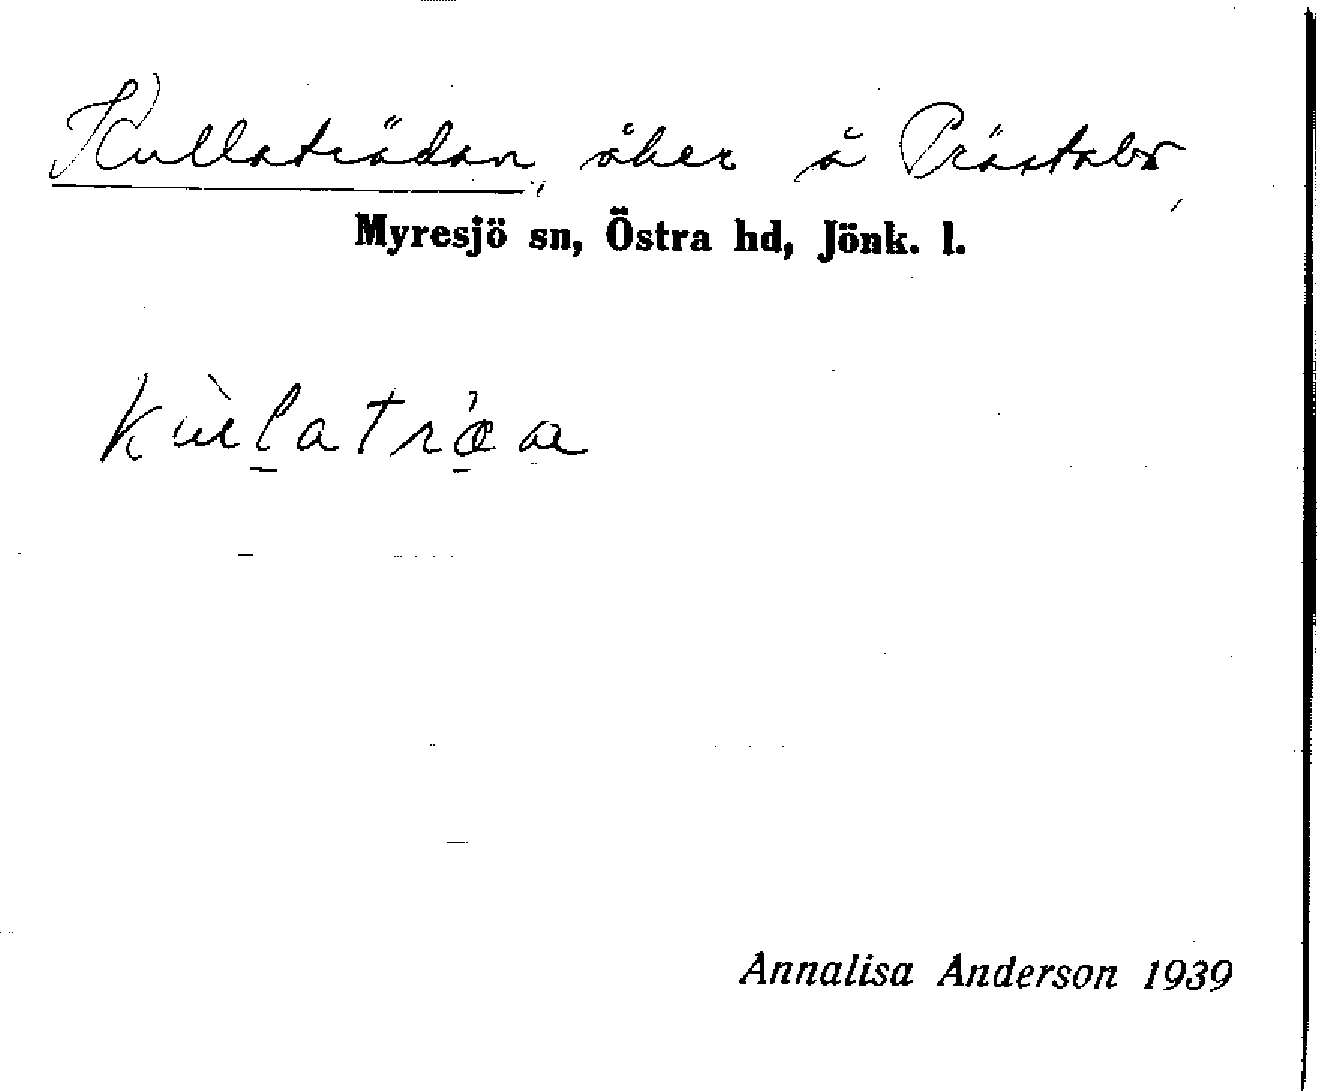 Kullaträdan, åker å Prästabo,
Myresjö sn, Östra hd, Jönk. l.
kùlatræ̀a
Annalisa Anderson 1939